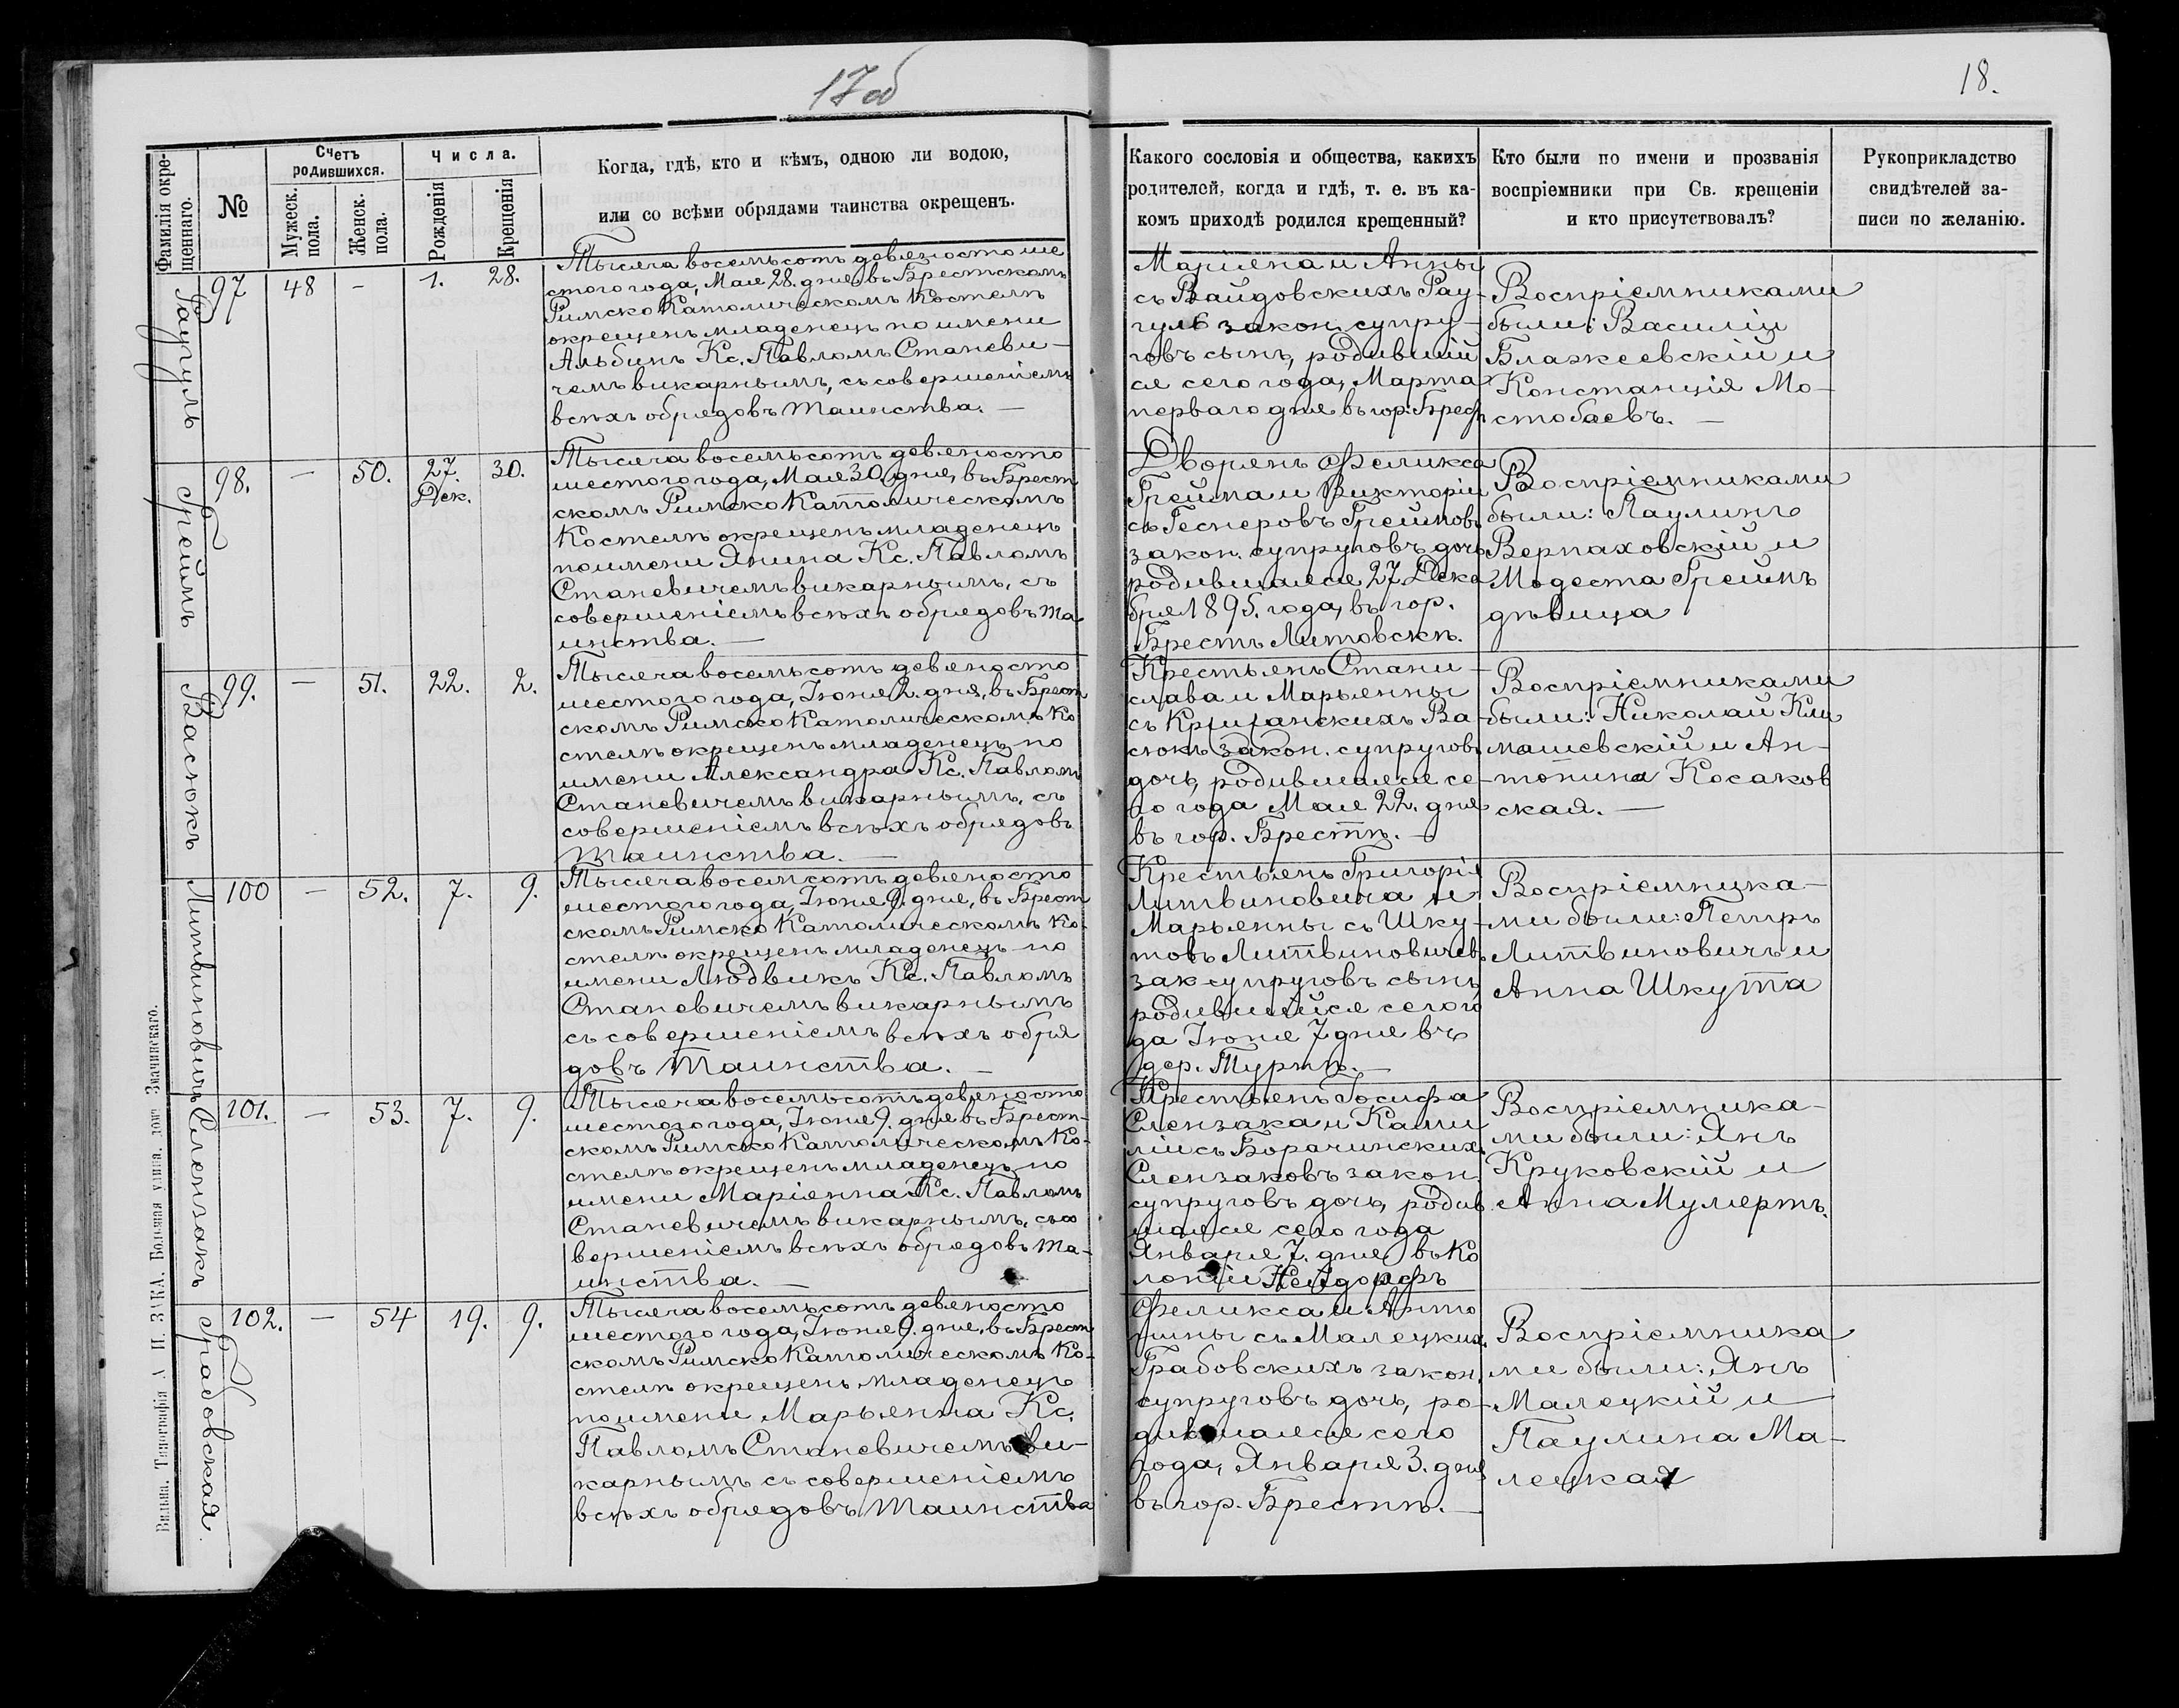 17об
18.
Фамилія окре-
щеннаго.
№
Счетъ
родившихся.
Мужеск.
пола.
Женск.
пола.
Числа.
Рожденія
Крещенія
Когда, гдѣ, кто и кѣмъ, одною ли водою,
или со всѣми обрядами таинства окрещенъ.
Какого сословія и общества, какихъ
родителей, когда и гдѣ, т. е. въ ка-
комъ приходѣ родился крещенный?
Кто были по имени и прозванія
воспріемники при Св. крещеніи
и кто присутствовалъ?
Рукоприкладство
свидѣтелей за-
писи по желанію.
Раугуль
97
48
-
1.
28.
Тысяча восемьсотъ девяносто ше
стого года, Мая 28. дня, въ Брестскомъ
Римско Католическомъ Костелѣ
окрещенъ младенецъ по имени
Альбинъ Кс. Павломъ Станеви-
чемъ викарнымъ, съ совершеніемъ
всѣхъ обрядовъ таинства. —
Маріяна и Анны
съ Вайдовскихъ Рау-
гуль закон. супру-
говъ сынъ, родившій
ся сего года, Марта
перваго дня въ гор: Брестѣ
Воспріемниками
были: Василій
Блажеевскій и
Констанція Мо-
стобаевъ. —
Греймъ
98.
—
50.
27.
Дек.
30.
Тысяча восемьсотъ девяносто
шестого года, Мая 30. дня, въ Брест
скомъ Римско Католическомъ
Костелѣ окрещенъ младенецъ
по имени Янина Кс. Павломъ
Станевичемъ викарнымъ, съ
совершеніемъ всѣхъ обрядовъ та
инства. —
Дворянъ Феликса
Грейма и Викторіи
съ Геснеровъ Греймовъ
закон. супруговъ дочь
родившаяся 27. Дека
бря 1895. года, въ гор.
Брестъ Литовскѣ.
Воспріемниками
были: Паулинъ
Верпаховскій и
Модеста Греймъ
дѣвица
Васюкъ
99.
—
51.
22.
2.
Тысяча восемьсотъ девяносто
шестого года, Іюня 2. дня, въ Брест
скомъ Римско Католическомъ Ко
стелѣ окрещенъ младенецъ по
имени Александра Кс. Павломъ
Станевичемъ викарнымъ, съ
совершеніемъ всѣхъ обрядовъ
таинства. —
Крестьянъ Стани-
слава и Марьянны
съ Крижанскихъ Ва-
сюкъ закон. супруговъ
дочь, родившаяся се-
го года Мая 22. дня
въ гор. Брестѣ. —
Воспріемниками
были: Николай Кли
машевскій и Ан-
тонина Косаков
ская. —
Литвиновичъ
100
—
52.
7.
9.
Тысяча восемсотъ девяносто
шестого года, Іюня 9. дня, въ Брест
скомъ Римско Католическомъ Ко-
стелѣ окрещенъ младенецъ по
имени Людвикъ Кс. Павломъ
Станевичемъ викарнымъ
съ совершеніемъ всѣхъ обря
довъ таинства. —
Крестьянъ Григорія
Литвиновича и
Марьянны съ Шку-
товъ Литвиновичевъ
зак супруговъ сынъ
родившійся сего го
да Іюня 7 дня въ
дер. Турнѣ. —
Воспріемника-
ми были: Петръ
Литвиновичъ и
Анна Шкута
Слензакъ
101.
—
53.
7.
9.
Тысяча восемьсотъ девяносто
шестого года, Іюня 9. дня въ Брест-
скомъ Римско Католическомъ Ко-
стелѣ окрещенъ младенецъ по
имени Маріянна Кс. Павломъ
Станевичемъ викарнымъ, съ со
вершеніемъ всѣхъ обрядовъ та-
инства. —
Крестьянъ Іосифа
Слензака и Ками
ліи съ Борачинскихъ
Слензаковъ закон.
супруговъ дочь, родив
шаяся сего года
Января 7. дня въ Ко
лоніи Нейдорфъ
Воспріемника-
ми были: Янъ
Круковскій и
Анна Мулертъ.
Грабовская.
102.
—
54
19.
9.
Тысяча восемьсотъ девяносто
шестого года, Іюня 9. дня, въ Брест
скомъ Римско Католическомъ Ко-
стелѣ окрещенъ младенецъ
по имени Марьянна Кс.
Павломъ Станевичемъ ви-
карнымъ съ совершеніемъ
всѣхъ обрядовъ таинства
Феликса и Анто
нины съ Малецкихъ
Грабовскихъ закон.
супруговъ дочь, ро-
дившаяся сего
года, Января 3. дня
въ гор. Брестѣ. —
Воспріемника
ми были: Янъ
Малецкій и
Паулина Ма-
лецкая
Вильна. Типографія А И. ЗАКА. Большая улица, дом. Значинскаго.